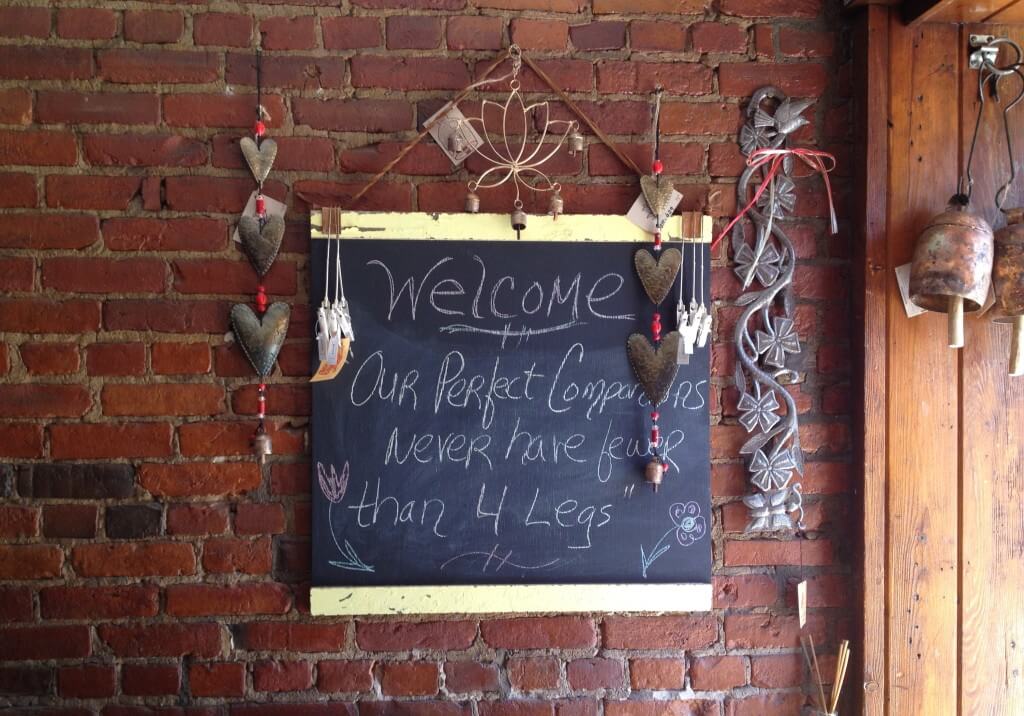 Welcome
Our Perfect Companions
Never have fewer
than 4 Legs"